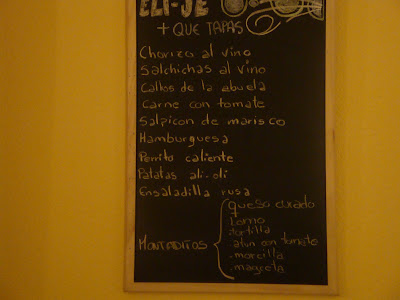 ELI-JE
+ QUE TAPAS
Chorizo al vino
Salchichas al vino
Callos de la abuela
Carne con tomate
Salpicon de marisco
Hamburguesa
Perrito caliente
Patatas ali-oli
Ensaladilla rusa
MONTADITOS
queso curado
.Lomo
.tortilla
.atun con tomate
.morcilla